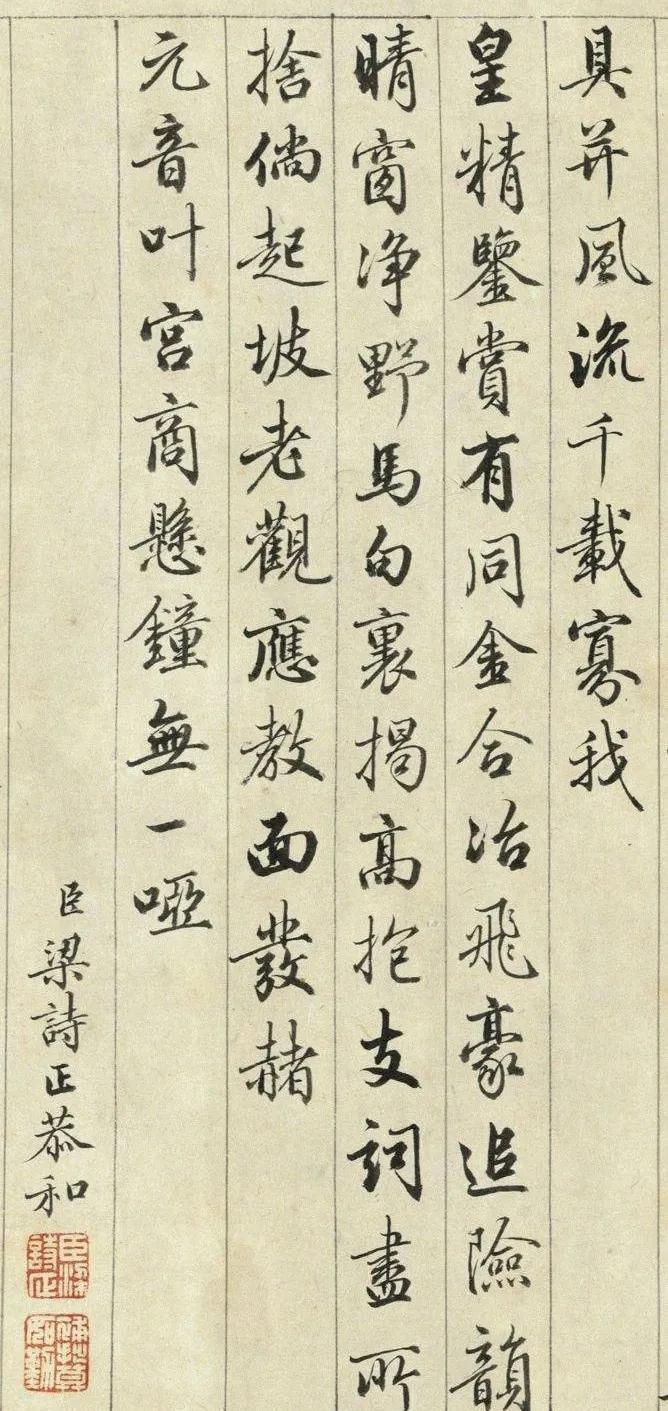 具并風流千載寡我
皇精鑒賞有同金合冶飛豪追險韻
晴窗净野馬句裏揭高抱支詞盡所
捨倘起坡老觀應教面發赭
元音叶宫商懸鐘無一啞
臣梁詩正恭和
臣梁詩正